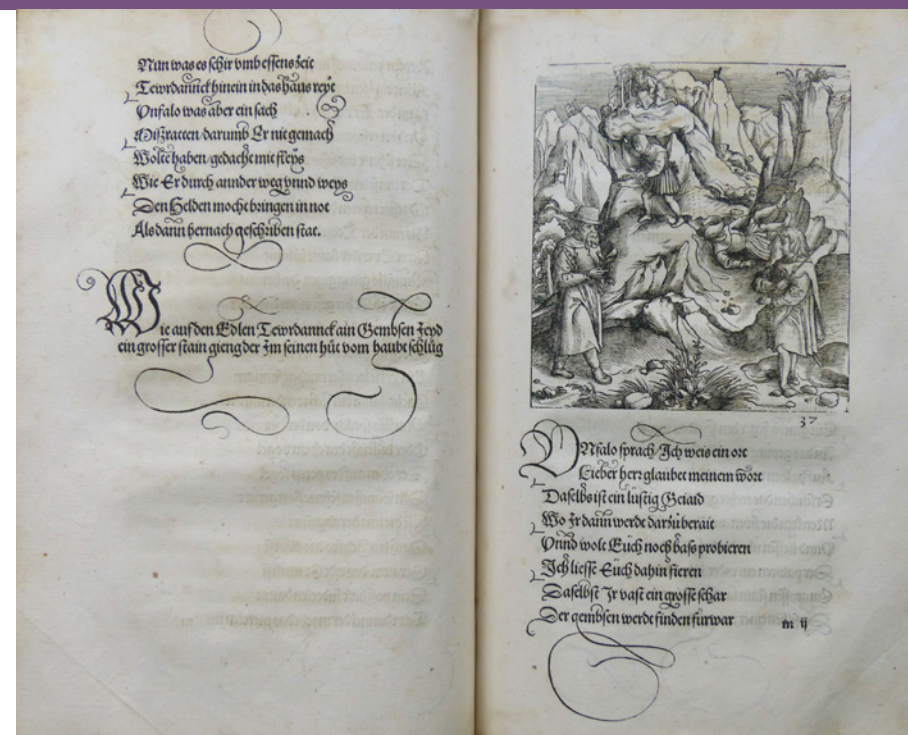 Nun was es schir vmb essens zeit
Tewrdannck hinein in das haus reyt
Vnfalo was aber ein sach
Mißratten/darumb Er nit gemach
Wolt haben/gedacht mit fleys
Wie Er durch annder weg vnnd weys
Den Helden mocht bringen in not
Als dann hernach geschriben stat.
Wie auf den Edlen Tewrdannck ain Gembsen Jeyd
ein grosser stain gieng der Im seinen hůt vom haubt schlůg
37
Vnfalo sprach/Ich weis ein ort
Lieber herr glaubet meinem wort
Daselbs ist ein lustig Geiaid
Wo Ir dann werdt darzů berait
Vnnd wolt Euch noch bass probieren
Ich liesse Euch dahin fieren
Daselbst Ir vast ein grosse schar
Der gembsen werdt finden fürwar
m ij